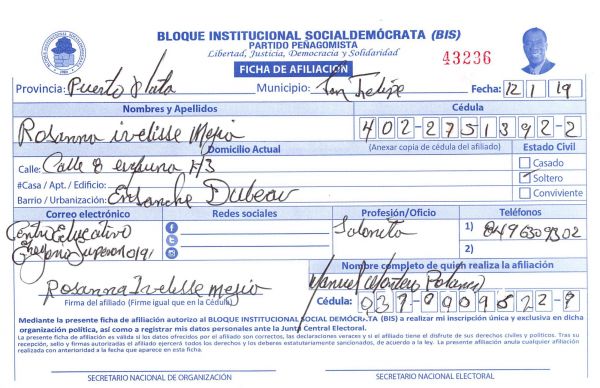 BLOQUE INSTITUCIONAL SOCIALDEMÓCRATA (BIS)
PARTIDO PEÑAGOMISTA
Libertad, Justicia, Democracia y Solidaridad
43236
FICHA DE AFILIACIÓN
Provincia: Puerto Plata Municipio: San Felipe Fecha: 12/1/19
Nombres y Apellidos Cédula
Rosanna ivelisse Mejia 402-2751392-2
Domicilio Actual (Anexar copia de cédula del afiliado) Estado Civil
Calle: Calle 8 #3 Casado
#Casa / Apt. / Edificio: Soltero
Barrio / Urbanización: Ensanche Dubeau Conviviente
Correo electrónico Redes sociales Profesión/Oficio Teléfonos
Centro Educativo 1) 8496309302
2)
Nombre completo de quien realiza la afiliación
Rosanna Ivelisse Mejia Manuel Polanco
Firma del afiliado (Firme igual que en la Cédula) Cédula: 037-0909522-8
Mediante la presente ficha de afiliación autorizo al BLOQUE INSTITUCIONAL SOCIAL DEMÓCRATA (BIS) a realizar mi inscripción única y exclusiva en dicha
organización política, así como a registrar mis datos personales ante la Junta Central Electoral.
La presente ficha de afiliación es válida si los datos ofrecidos por el afiliado son correctos, las declaraciones veraces y si el afiliado tiene el disfrute de sus derechos civiles y políticos. Tras su
recepción, sello y firmas autorizadas el afiliado ejercerá todos los derechos y los deberes estatutariamente sancionados, de acuerdo a la ley. La presente afiliación anula cualquier afiliación
realizada con anterioridad a la fecha que aparece en esta ficha.
SECRETARIO NACIONAL DE ORGANIZACIÓN SECRETARIO NACIONAL ELECTORAL